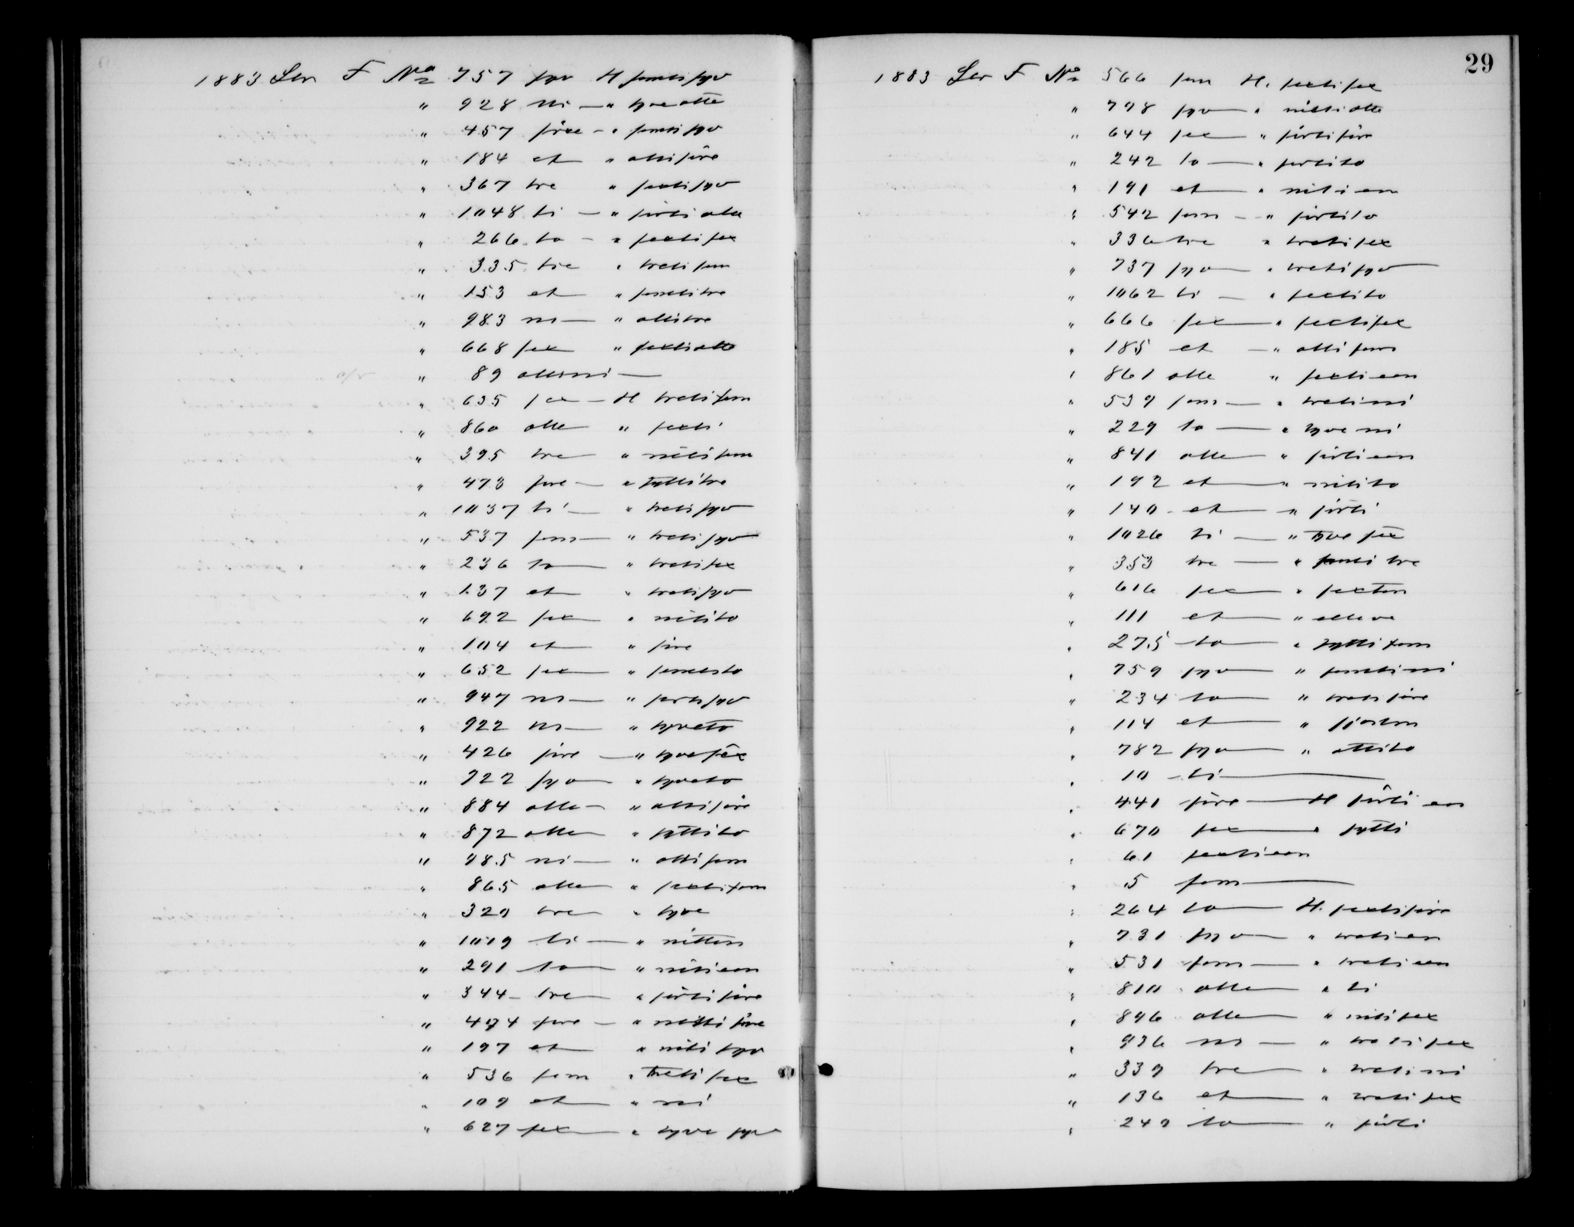 1883 Ser F No 757 syv H femtisyv
" 928 ni — " tyveotte
" 457 fire — " femtisyv
" 184 et " ottifire
" 367 tre " sextisyv
" 1048 ti — " förtiotte
" 266 to — " sextisex
" 335 tre " tretifem
" 153 et " femtitre
" 983 ni — " ottitre
" 668 sex " sextiotte
" 89 ottini —
" 635 sex — H tretifem
" 860 otte " sexti
" 395 tre " nitifem
" 473 fire — " syttitre
" 1037 ti — " tretisyv
" 537 fem — " tretisyv
" 236 to — " tretisex
" 137 et " tretisyv
" 692 sex " nitito
" 104 et " fire
" 652 sex — " femtito
" 947 ni — " förtisyv
" 922 ni — " tyveto
" 426 fire — " tyvesex
" 722 syv — " tyveto
" 884 otte — " ottifire
" 872 otte " syttito
" 985 ni — " ottifem
" 865 otte " sextifem
" 320 tre " tyve
" 1019 ti — " nitten
" 291 to — " nitieen
" 344 tre — " förtifire
" 494 fire — " nittifire
" 197 et " nitisyv
" 536 fem " tretisex
" 109 et — " ni
" 627 sex — " tyvesyv
29
1883 Ser F No 566 fem H. sextisex
" 798 syv — " nittiotte
" 644 sex " förtifire
" 242 to — " förtito
" 191 et — " nitieen
" 542 fem — " förtito
" 336 tre " tretisex
" 737 syv — " tretisyv —
" 1062 ti — " sextito
" 666 sex — " sextisex
" 185 et — " ottifem
" 861 otte " sextieen
" 539 fem — " tretini
" 229 to — " tyveni
" 841 otte " förtieen
" 192 et — " nitito
" 140 et — " förti
" 1026 ti — " tyvesex
" 353 tre — " femtitre
" 616 sex — " sexten
" 111 et — " elleve
" 275 to — " syttifem
" 759 syv — " femtini
" 234 to — " tretifire
" 114 et — " fjorten
" 782 syv — " ottito
" 10 ti —
" 441 fire — H förtieen
" 670 sex — " sytti
" 61 sextieen
" 5 fem —
" 264 to — H. sextifire
" 731 syv — " tretieen
" 531 fem — " tretieen
" 810 otte — " ti
" 896 otte — " nitisex
" 936 ni — " tretisex
" 339 tre — " tretini
" 136 et — " tretisex
" 240 to — " förti